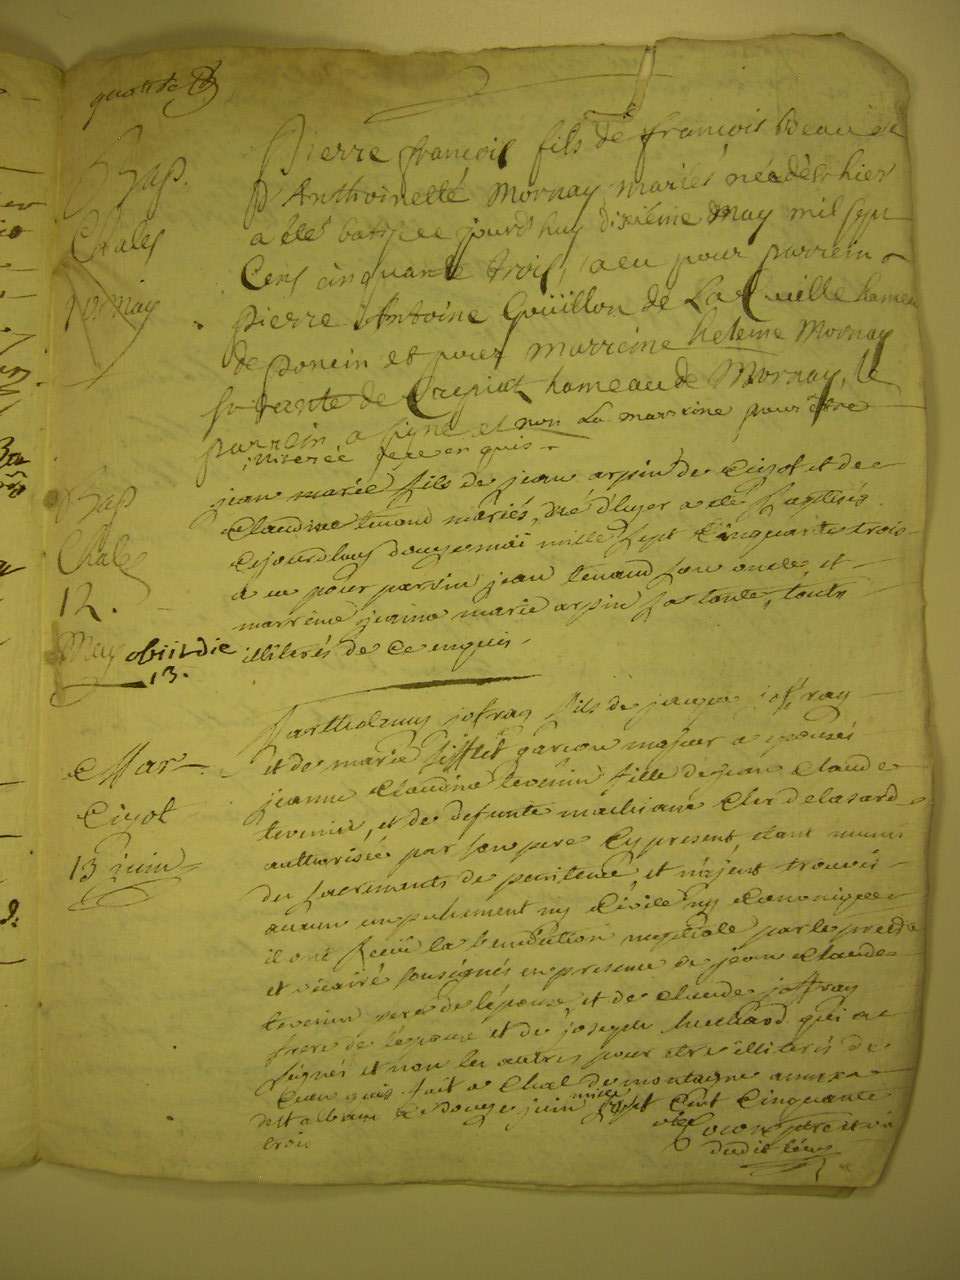 quatrde
Bap.
Chales
10 may
Pierre françois fils de françois Beau et
D'Anthoinette Mornay mariés née dès hier
a été batisee jourdhuy dixième may mil sept
Cens cinquante trois, a eu pour parrein
pierre Antoine Goüillon de La Cueille hameau
de Poncin et pour marreine heleine Mornay
servante de Crepiat hameau de Mornay, le
parrein a signé et non La marreine pour être
illiterée de ce enquis
Bap
Chales
12.
May obiit die
13.
jean marie fils de jean arpin de Cizot et de
Claudine tenand mariés, né d'hyer a été baptisés
Cejourdhuy douze mai mille sept Cinquante trois
a eu pour parrin jean tenand son oncle, et
marreine jeanne marie arpin sa tante, touts
illiterés de ce enquis.
Mar
Cizot
13 juin
Bartholomy jofray fils de jaque joffray
et de marie garcon majeur a epousés
jeanne Claudine tevenin fille de jean Claude
tevenin, et de defunte
autharisée par son pere Cy present, étant munis
du sacrements de penitence, et n'ajent trouvés
aucun empechement ny Civile ny Canonique
il ont Receu la benediction nuptiale par le pretre
et vicaire sousignés en presence de jean Claude
tevenin pere de l'épouse, et de Claude joffray
frere de l'epoux et de joseph qui a
signés et non les autres pour etre illiterés de
Ceenquis fait a Chal de montagne annexe
de st alban Ce douze juin mille sept Cent Cinquante
trois
ptre et vic
dudit lieu